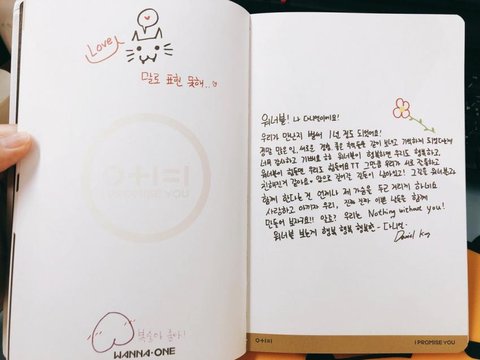 Love
말로 표현 못해...
I PROMISE YOU
복숭아 좋아!
WANNA·ONE
워너블! 나 다니엘이에요!
우리가 만난지 벌써 1년 정도 되었어요!
정말 많은 일, 새로운 경험, 좋은 추억들을 같이 보내고 기억하게 되었다는게
너무 감사하고 기뻐요 워너블이 행복하면 우리도 행복하고,
워너블이 힘들면 우리도 힘들어요 TT 그만큼 우리가 서로 소통하고
친해진거 같아요. 앞으로 걸어갈 길들이 남아있고! 그 길을 워너블과
함께 한다는 건 언제나 제 가슴을 두근거리게 하네요
사랑하고 아끼자 우리, 진짜 진짜 이쁜 날들을 함께
만들어 보자구요!! 알죠? 우리는 Nothing without you!
워너블 보는게 행복 행복 행복한 - 다니엘 -
Daniel K
I PROMISE YOU